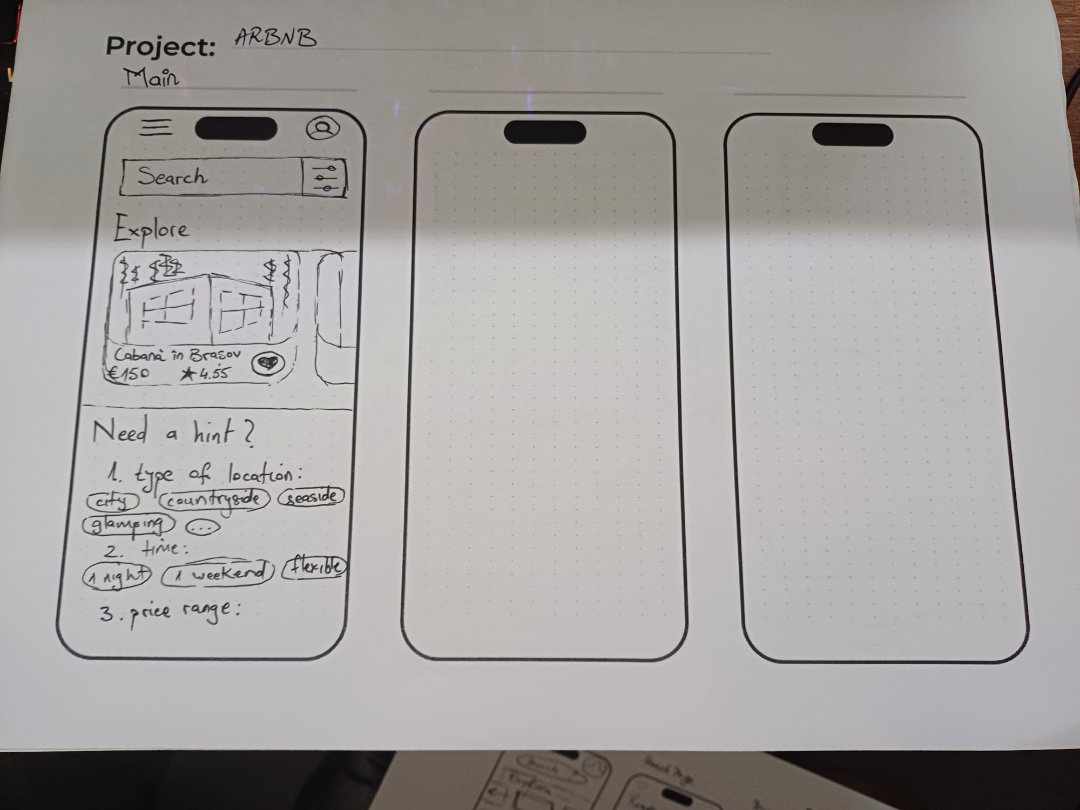 Project: ARBNB
Main
Search
Explore
Cabană in Brașov
€150 ★4.55
Need a hint?
1. type of location:
city countryside seaside
glamping ...
2. time:
1 night 1 weekend flexible
3. price range: